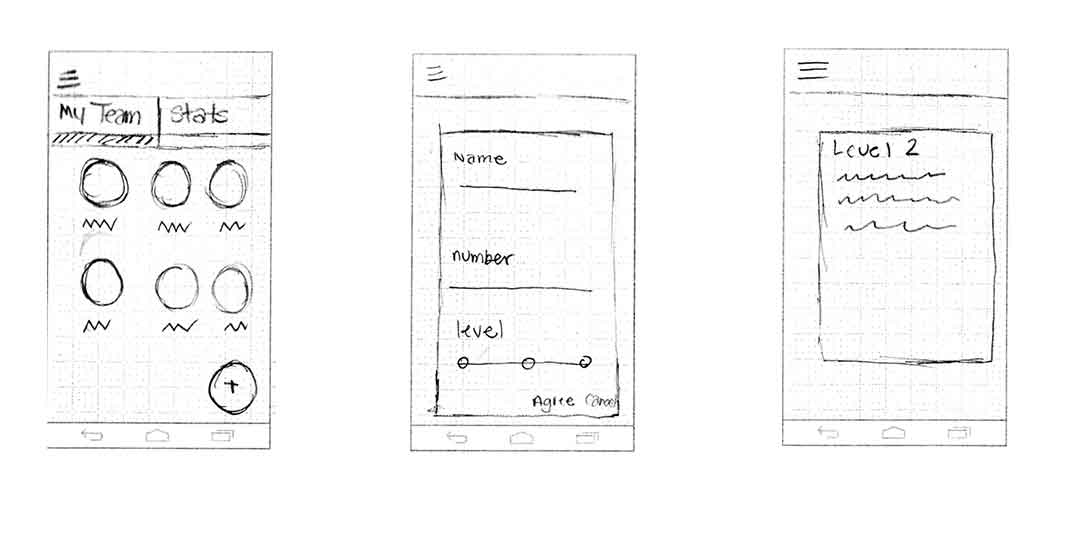 My Team
Stats
+
Name
number
level
Agree Cancel
Level 2